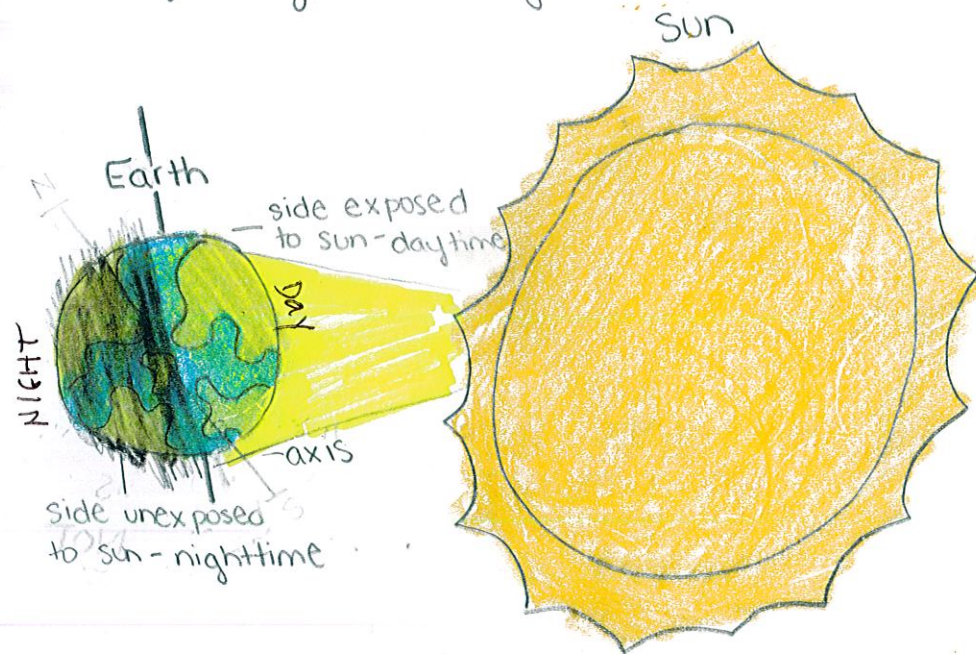 Sun
Earth
side exposed
to sun-daytime
Day
NIGHT
axis
side unexposed
to sun-nighttime